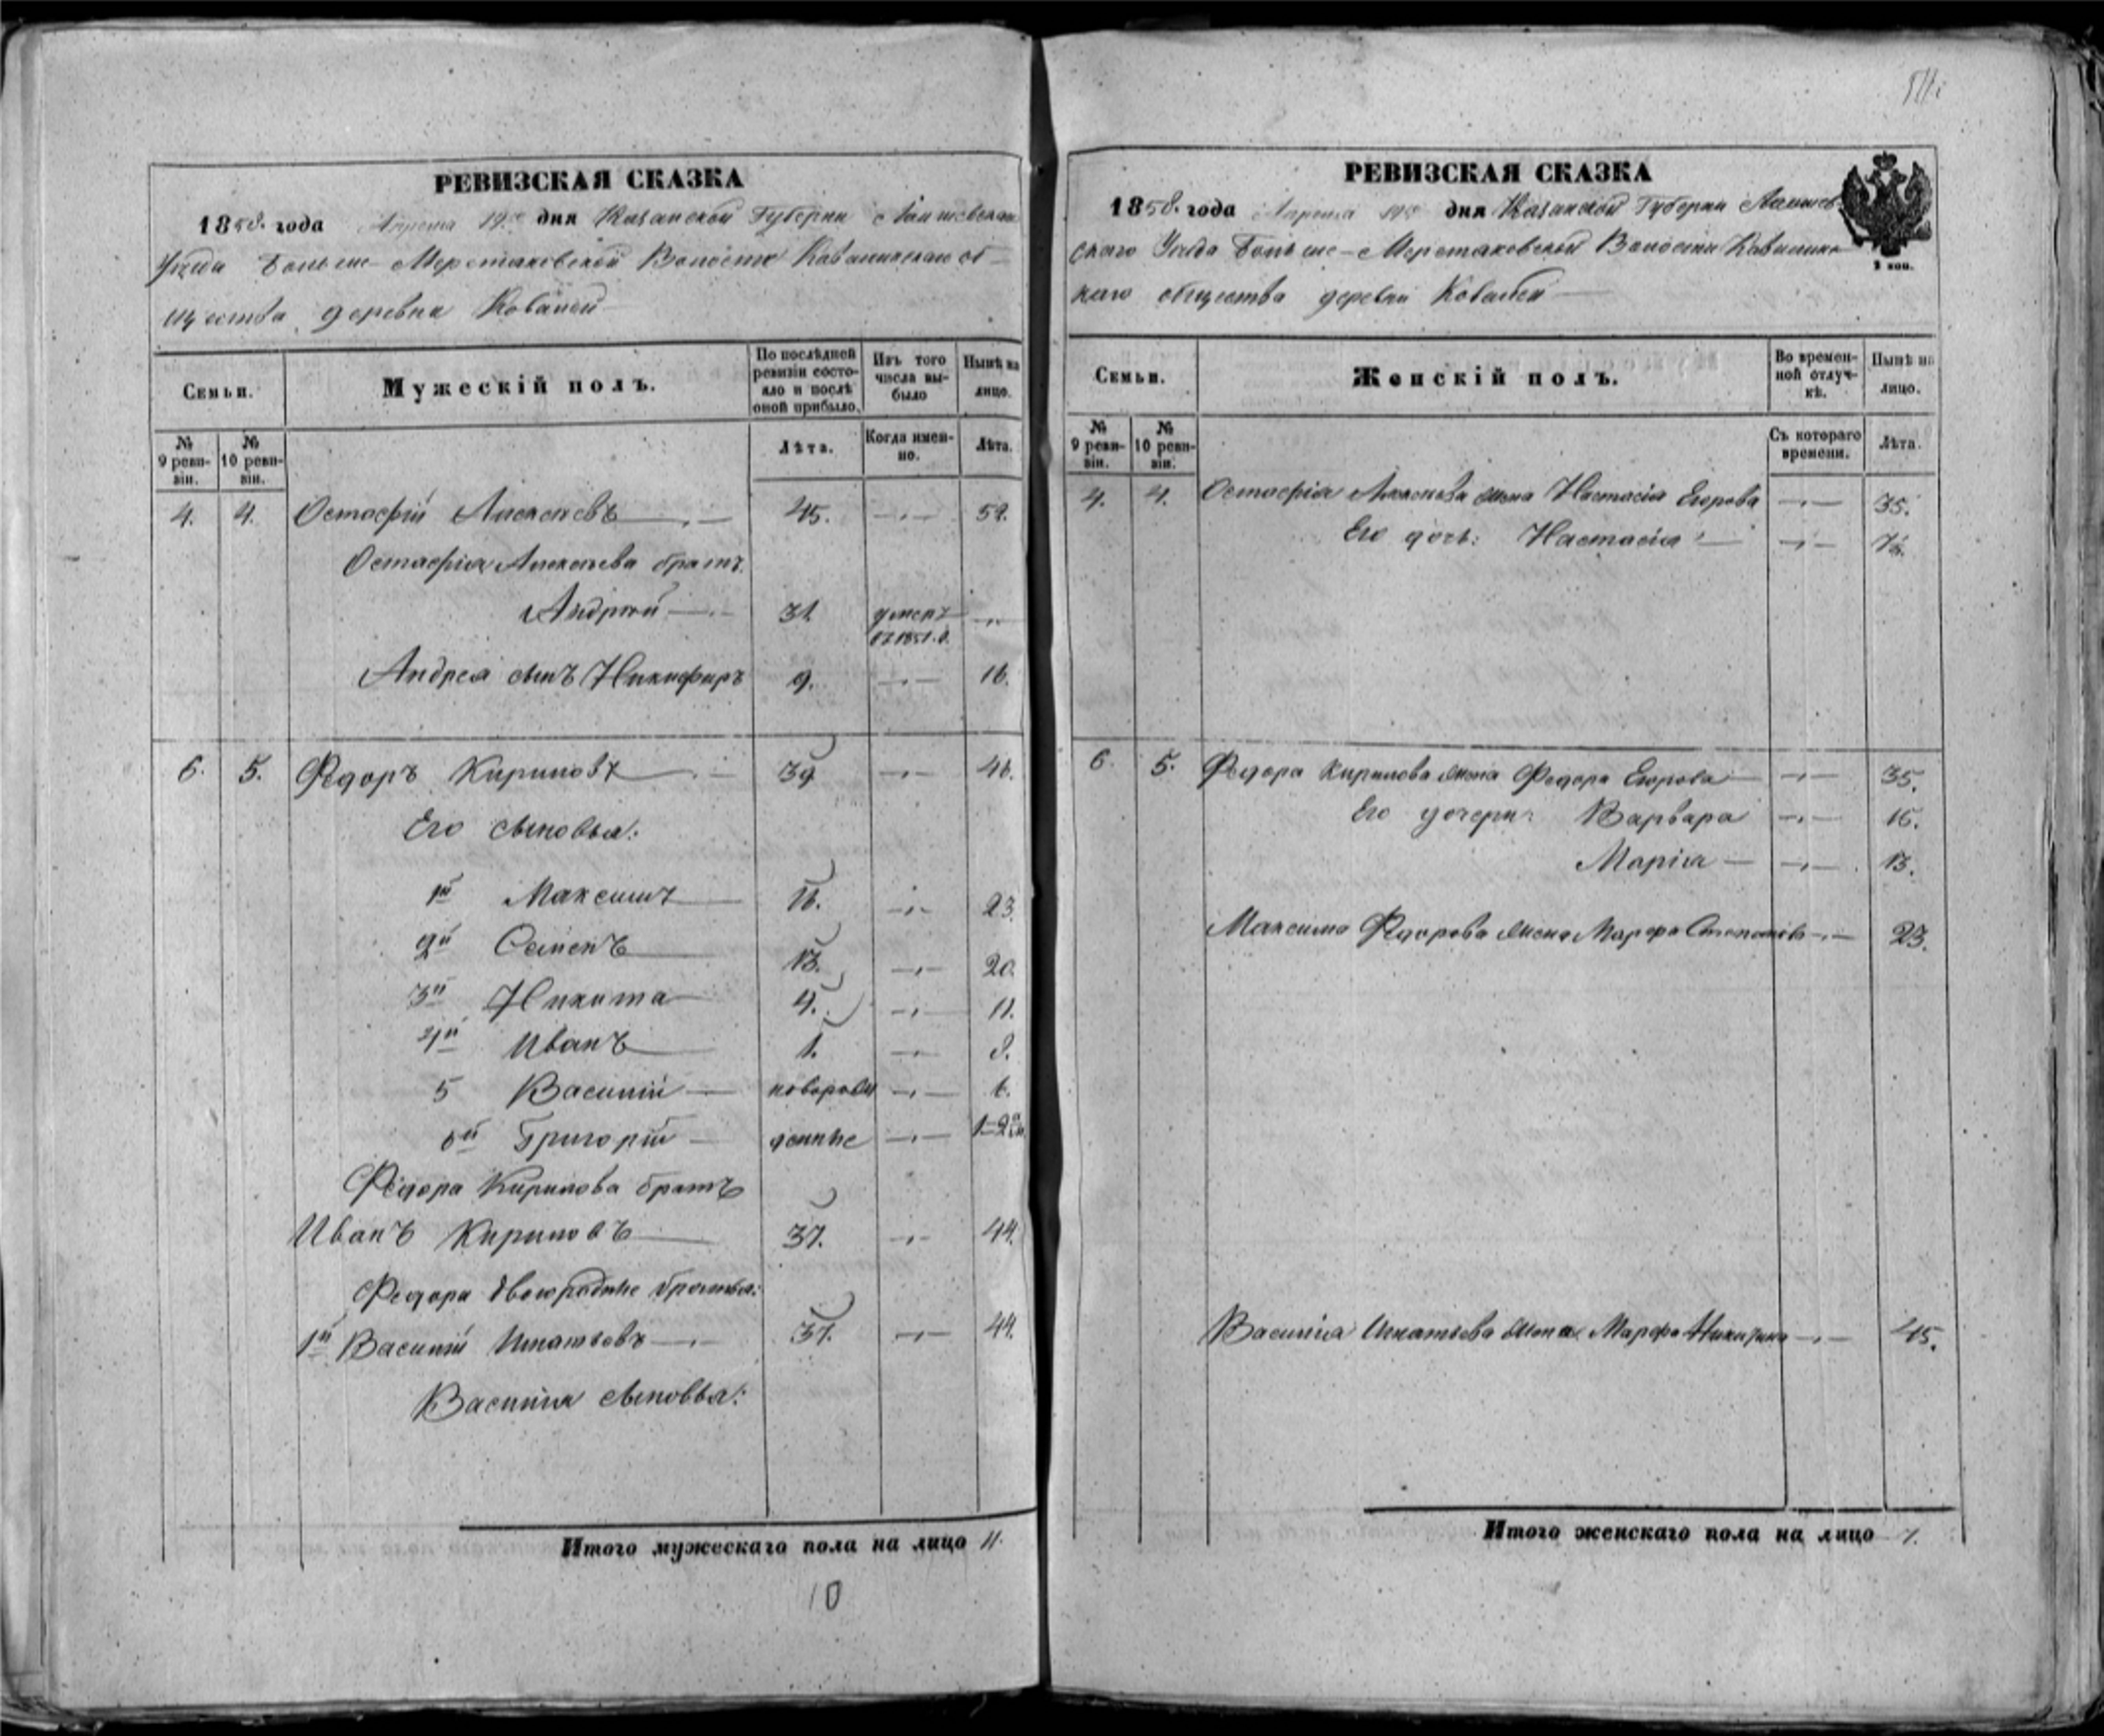 РЕВИЗСКАЯ СКАЗКА
1858. года Апреля 19го дня Казанской Губернии Лаишевскаго
Уѣзда Больше-Меретяковской Волости Ковалинскаго об-
щества деревни Ковалей
Семьи.
Мужескій полъ.
По послѣдней ревизіи состояло и послѣ оной прибыло.
Изъ того числа выбыло
Нынѣ на лицо.
№ 9 ревизіи.
№ 10 ревизіи.
Лѣта.
Когда именно.
Лѣта.
4. 4. Остафій Алексѣевъ 45. 52.
Остафія Алексѣева братъ
Андрей 31 умеръ въ 1851. г.
Андрея сынъ Никифоръ 9. 16.
6. 5. Федоръ Кириловъ 39 46.
Его сыновья:
1й Максимъ 16. 23.
2й Семенъ 13. 20.
3й Никита 4. 11.
4й Иванъ 1. 8.
5 Василій новорож 6.
6й Григорій деннѣе 1-2
Федора Кирилова братъ
Иванъ Кириловъ 37. 44.
Федора двоюродные братья:
1й Василій Игнатьевъ 37. 44.
Василія сыновья:
Итого мужескаго пола на лицо 11.
10
РЕВИЗСКАЯ СКАЗКА
1858. года Апреля 19го дня Казанской Губерніи Лаишев-
скаго Уѣзда Больше-Меретяковской Волости Ковалинс-
каго общества деревни Ковалей
2 коп.
Семьи.
Женскій полъ.
Во временной отлучкѣ.
Нынѣ на лицо.
№ 9 ревизіи.
№ 10 ревизіи.
Съ котораго времени.
Лѣта.
4. 4. Остафія Алексѣева жена Настасія Егорова 35.
Его дочь: Настасія
6. 5. Федора Кирилова жена Федора Егорова 35.
Его дочери: Варвара 16.
Марія 13.
Максима Федорова жена Марфа Степанова 23.
Василія Игнатьева жена Марфа Никитина 45.
Итого женскаго пола на лицо 7.